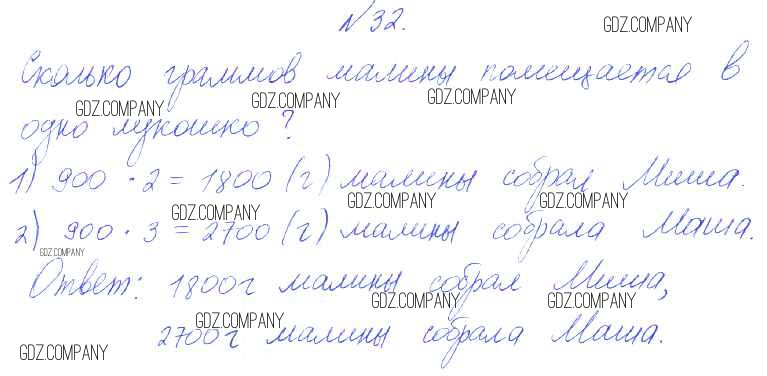 №32.
GDZ.COMPANY
Сколько граммов малины помещается в
GDZ.COMPANY GDZ.COMPANY GDZ.COMPANY
одно лукошко?
1) 900 · 2 = 1800 (г) малины собрал Миша.
GDZ.COMPANY GDZ.COMPANY GDZ.COMPANY
2) 900 · 3 = 2700 (г) малины собрала Маша.
GDZ.COMPANY
Ответ: 1800г малины собрал Миша,
GDZ.COMPANY GDZ.COMPANY
GDZ.COMPANY
2700г малины собрала Маша.
GDZ.COMPANY